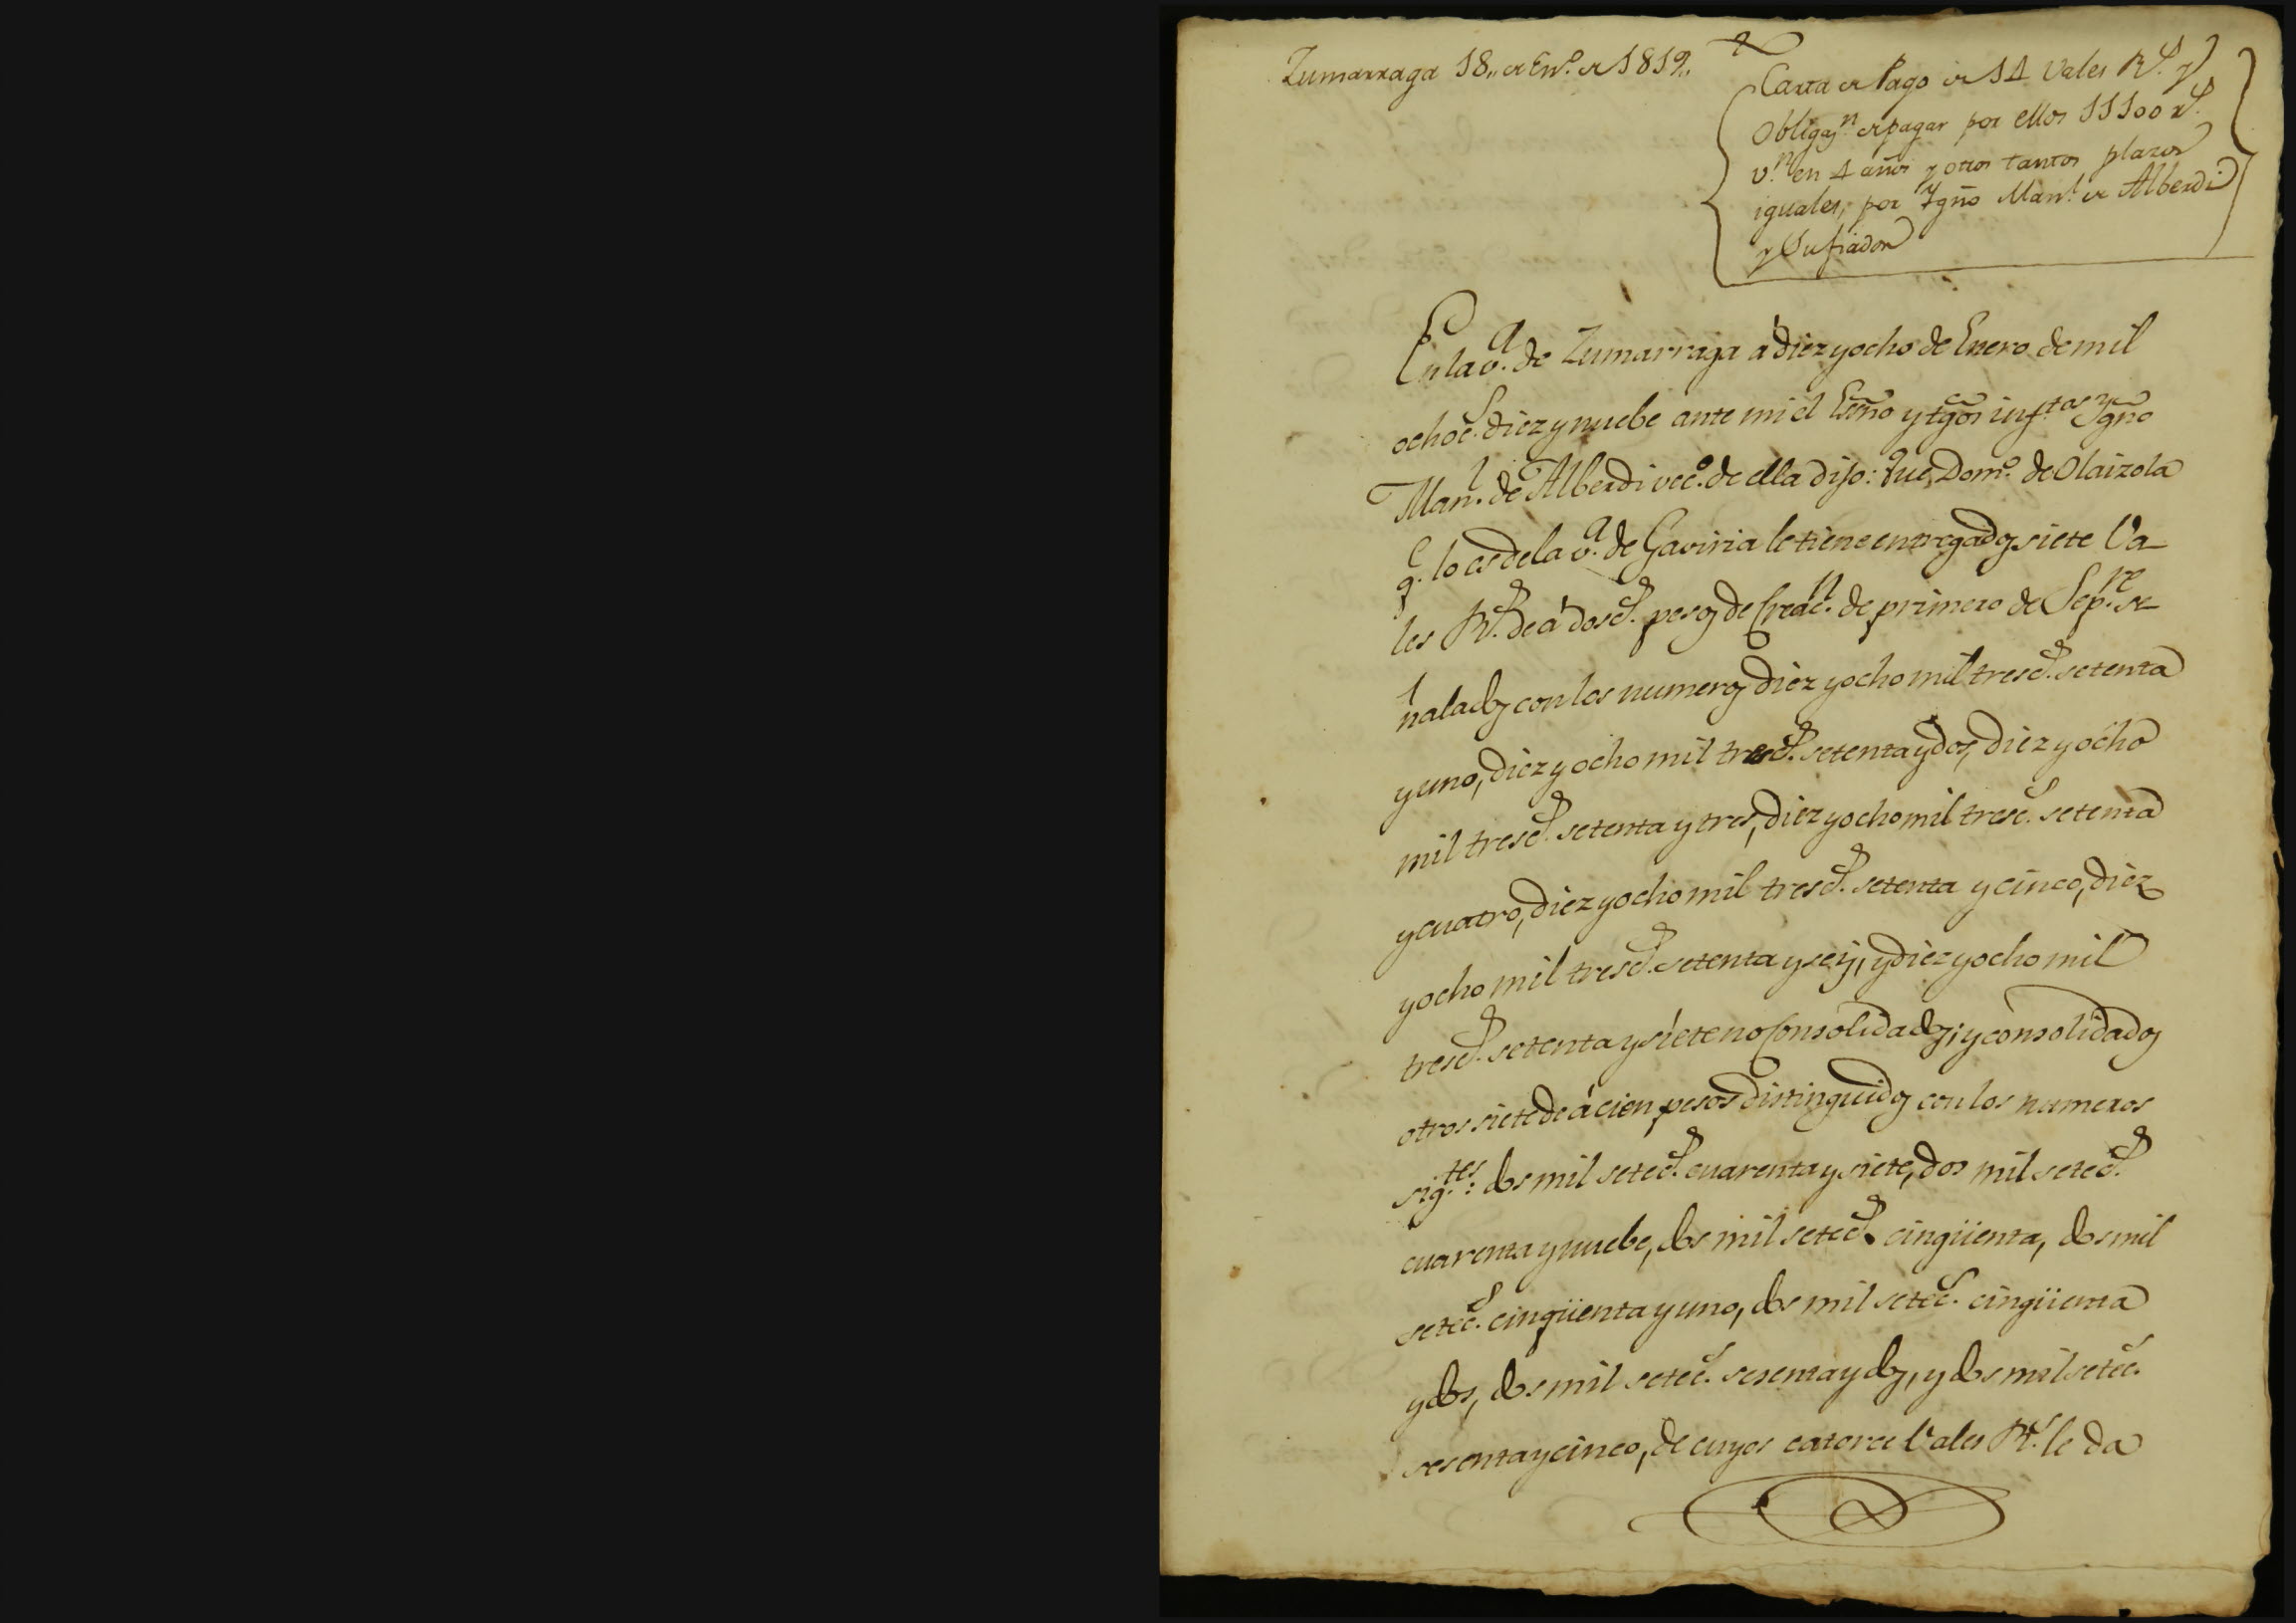 Zumarraga 18,, de En.º de 1819,,
Carta de Pago de 14 Vales R.s y
Obligaz.n de pagar por ellos 11100 r.s
v.n en 4 años y otros tantos plazos
iguales, por Ygño Man.l de Alberdi
y Su fiador
En la v.a de Zumarraga á diez y ocho de Enero de mil
ochoc.s diez y nuebe ante mi el Esño y tgos inf.tos Ygño
Man.l de Alberdi vec.º de ella dijo: Que Dom.º de Olaizola
q.e lo es de la v.a de Gaviria le tiene entregados siete Va-
les R.s de á dosc.s pesos de Creac.n de primero de Sep.re se-
ñalados con los numeros diez y ocho mil tresc.s setenta
y uno, diez y ocho mil tresc.s setenta y dos, diez y ocho
mil tresc.s setenta y tres, diez y ocho mil tresc.s setenta
y cuatro, diez y ocho mil tresc.s setenta y cinco, diez
y ocho mil tresc.s setenta y seis, y diez y ocho mil
tresc.s setenta y siete no Consolidados; y consolidados
otros siete de á cien pesos distinguidos con los numeros
sig.tes: dos mil setec.s cuarenta y siete, dos mil setec.s
cuarenta y nuebe, dos mil setec.s cinqüenta, dos mil
setec.s cinqüenta y uno, dos mil setec.s cinqüenta
y dos, dos mil setec.s sesenta y dos, y dos mil setec.s
sesenta y cinco, de cuyos catorce Vales R.s le da